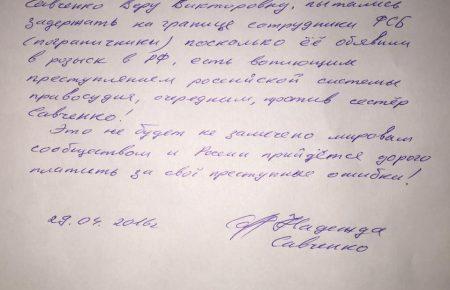 Савченко Веру Викторовну, пытались
задержать на границе сотрудники ФСБ
(пограничники) поскольку её обявили
в розыск в РФ, есть вопиющим
преступлением российской системы
правосудия, очередним, против сестёр
Савченко!
Это не будет не замечено мировым
сообществом и России прийдётся дорого
платить за свои преступные ошибки!
29.04.2016г.
Надежда
Савченко